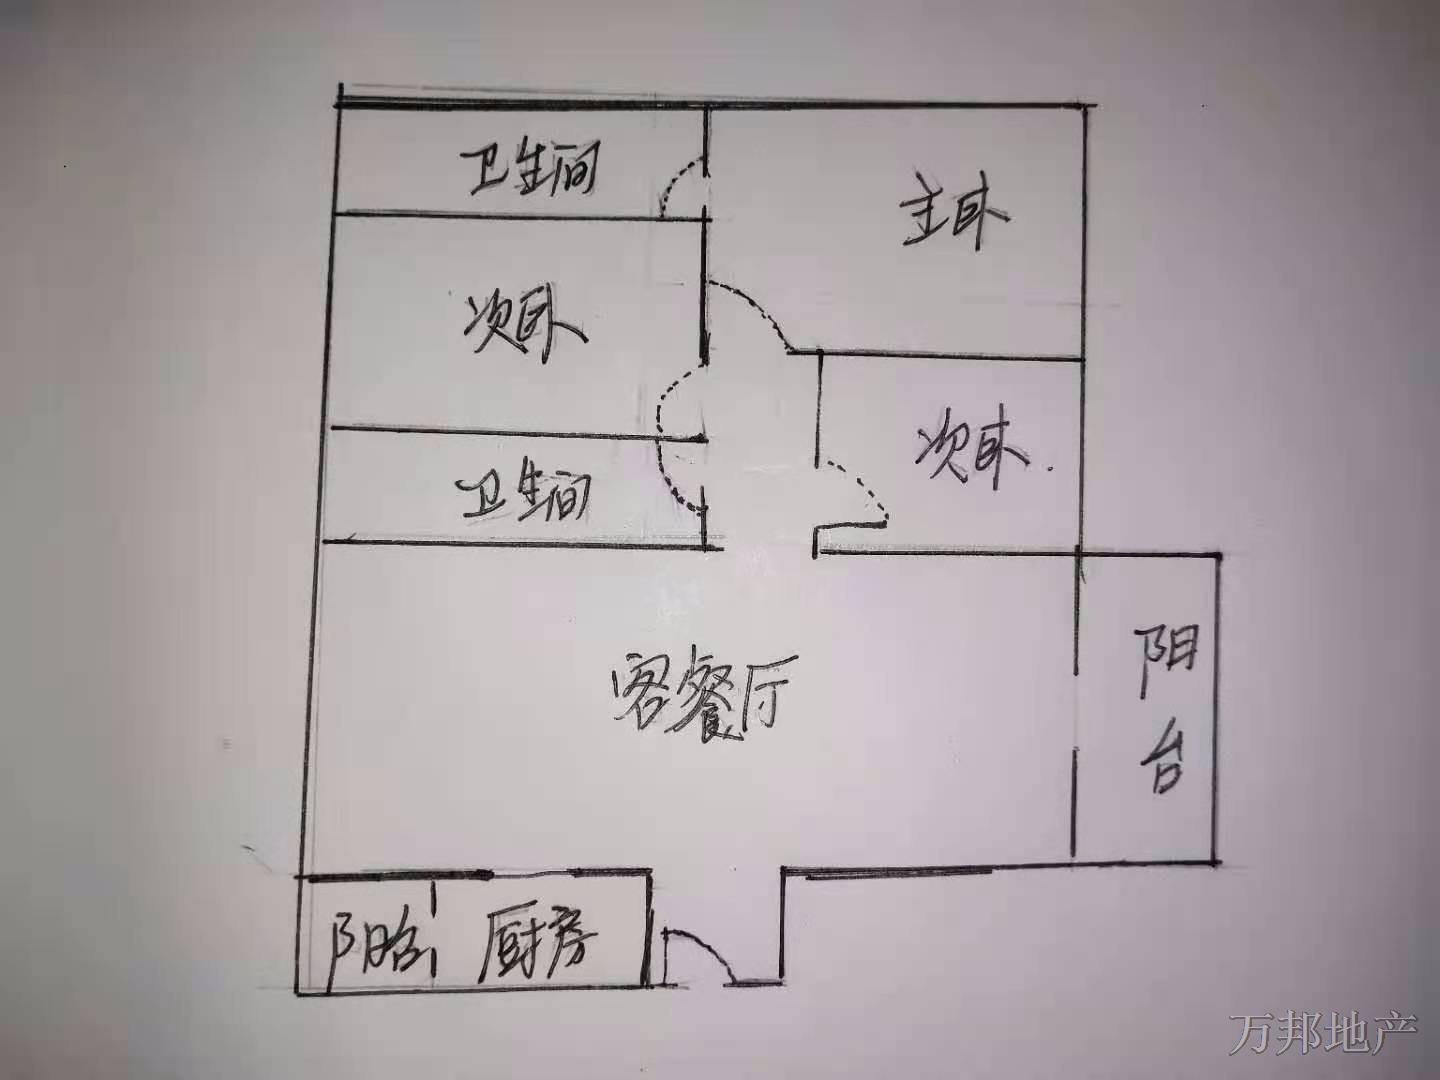 卫生间
主卧
次卧
次卧
卫生间
客餐厅
阳台
阳台
厨房
万邦地产